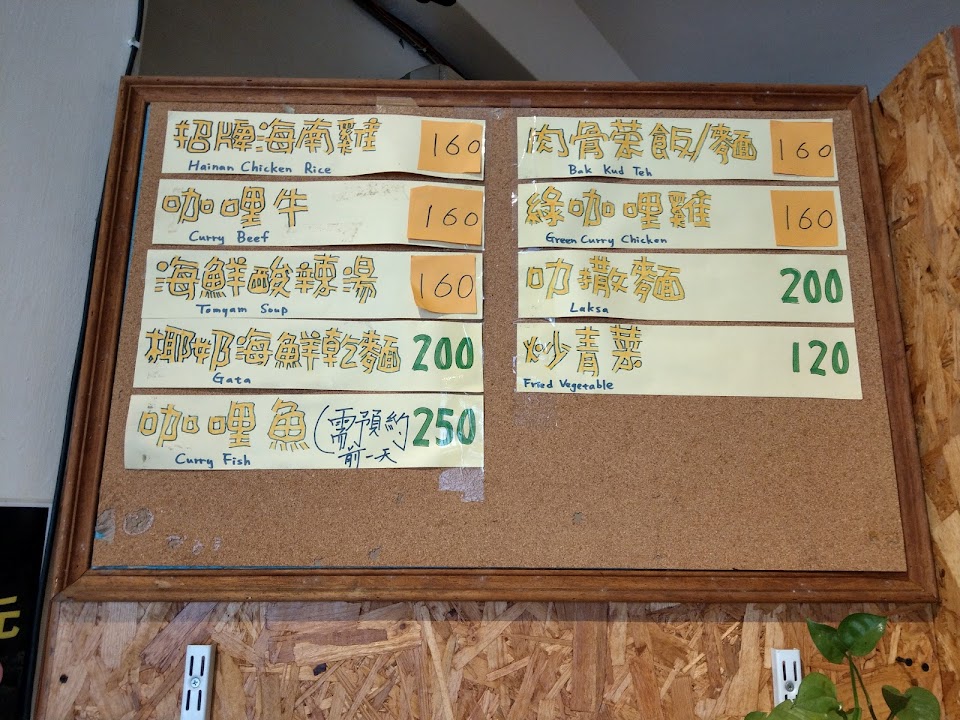 招牌海南雞 160
Hainan Chicken Rice
咖哩牛 160
Curry Beef
海鮮酸辣湯 160
Tomyam Soup
椰奶海鮮乾麵 200
Gata
咖哩魚(需預約 250
前一天
Curry Fish
肉骨菜飯/麵 160
Bak Kud Teh
綠咖哩雞 160
Green Curry Chicken
叻撒麵 200
Laksa
炒青菜 120
Fried Vegetable
元